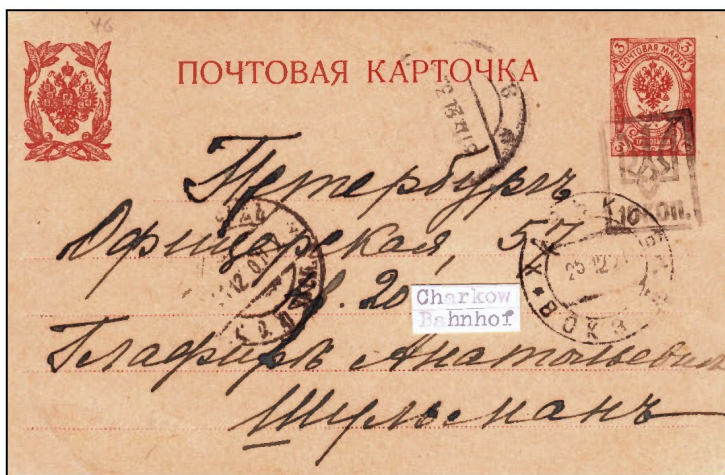 46
ПОЧТОВАЯ КАРТОЧКА
3 ПОЧТОВАЯ МАРКА 3
3
10 коп.
Петербургъ
Офицерская, 57
кв. 20
25 12 21
ХАРЬКОВ
Charkow
Bahnhof
Глафирѣ Анатольевнѣ
Шульманъ